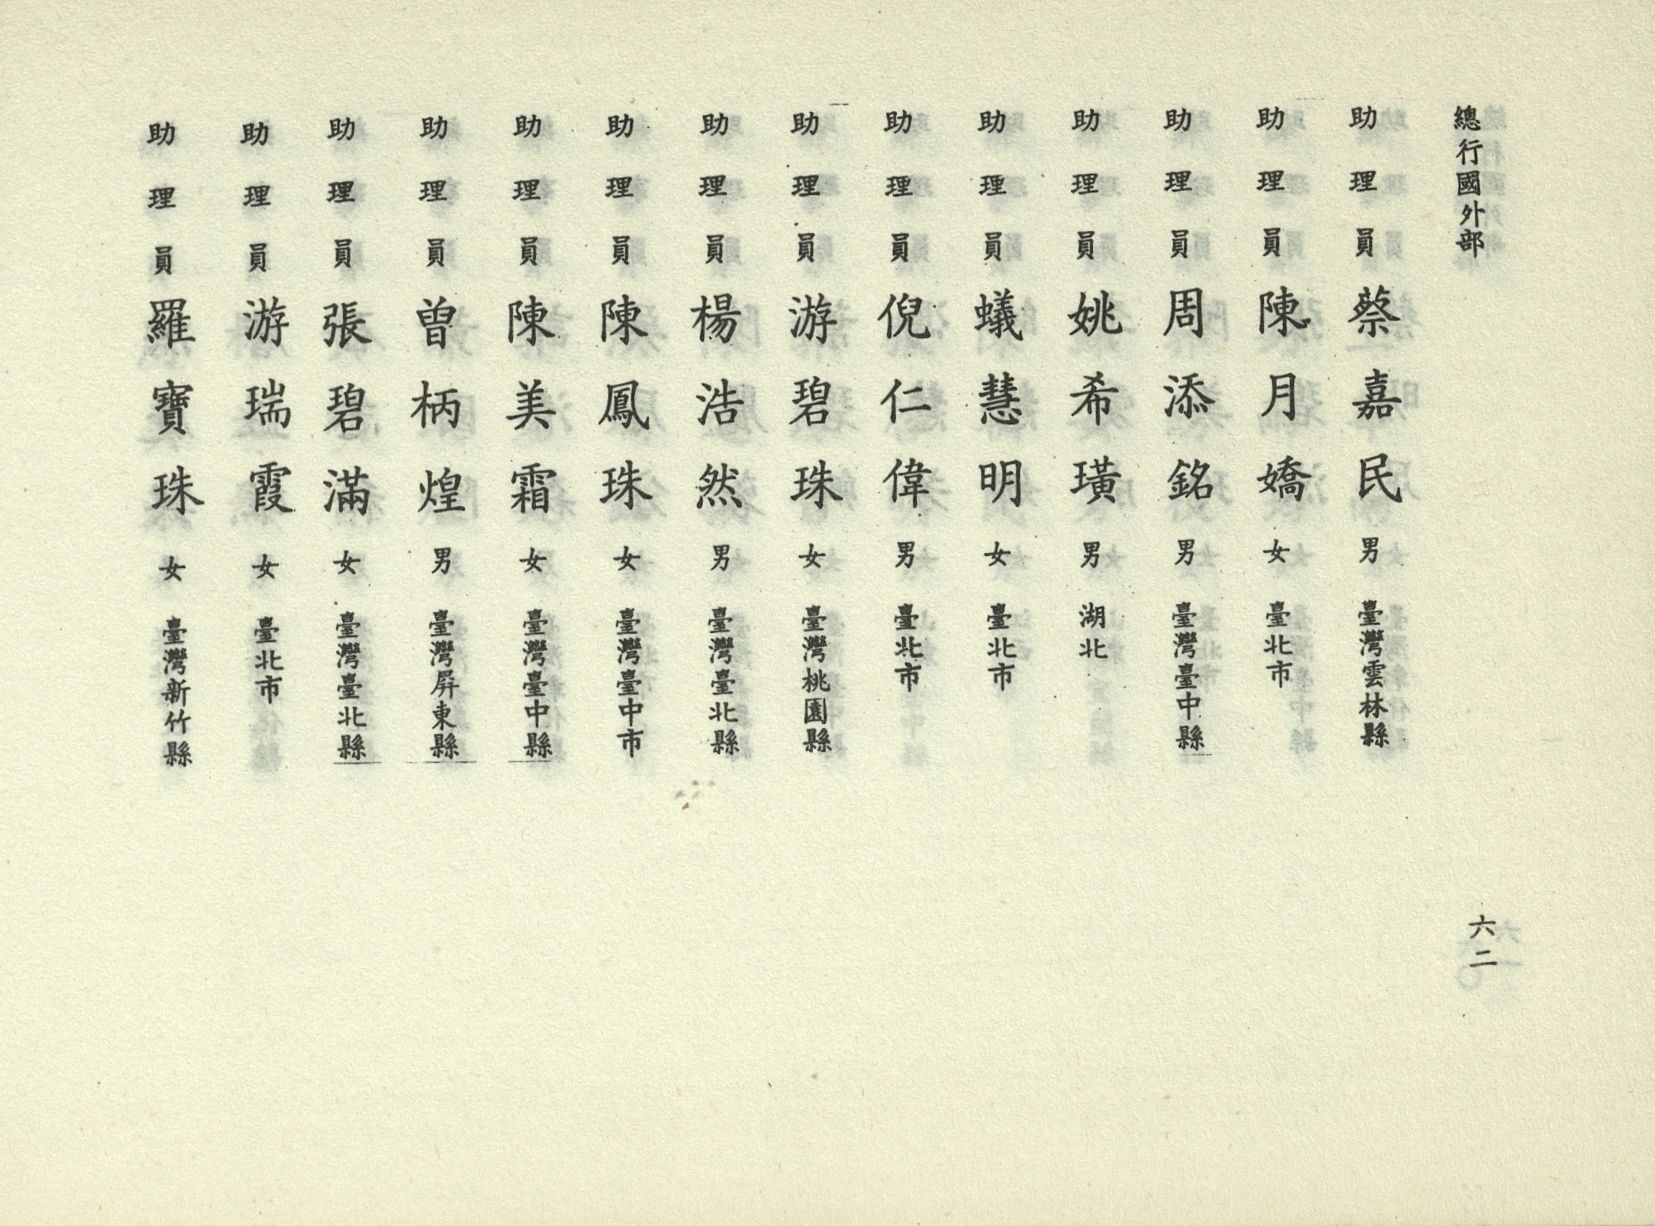 總行國外部
六二
助理員蔡嘉民男臺灣雲林縣
助理員陳月嬌女臺北市
助理員周添銘男臺灣臺中縣
助理員姚希璜男湖北
助理員蟻慧明女臺北市
助理員倪仁偉男臺北市
助理員游碧珠女臺灣桃園縣
助理員楊浩然男臺灣臺北縣
助理員陳鳳珠女臺灣臺中市
助理員陳美霜女臺灣臺中縣
助理員曾柄煌男臺灣屏東縣
助理員張碧滿女臺灣臺北縣
助理員游瑞霞女臺北市
助理員羅寶珠女臺灣新竹縣